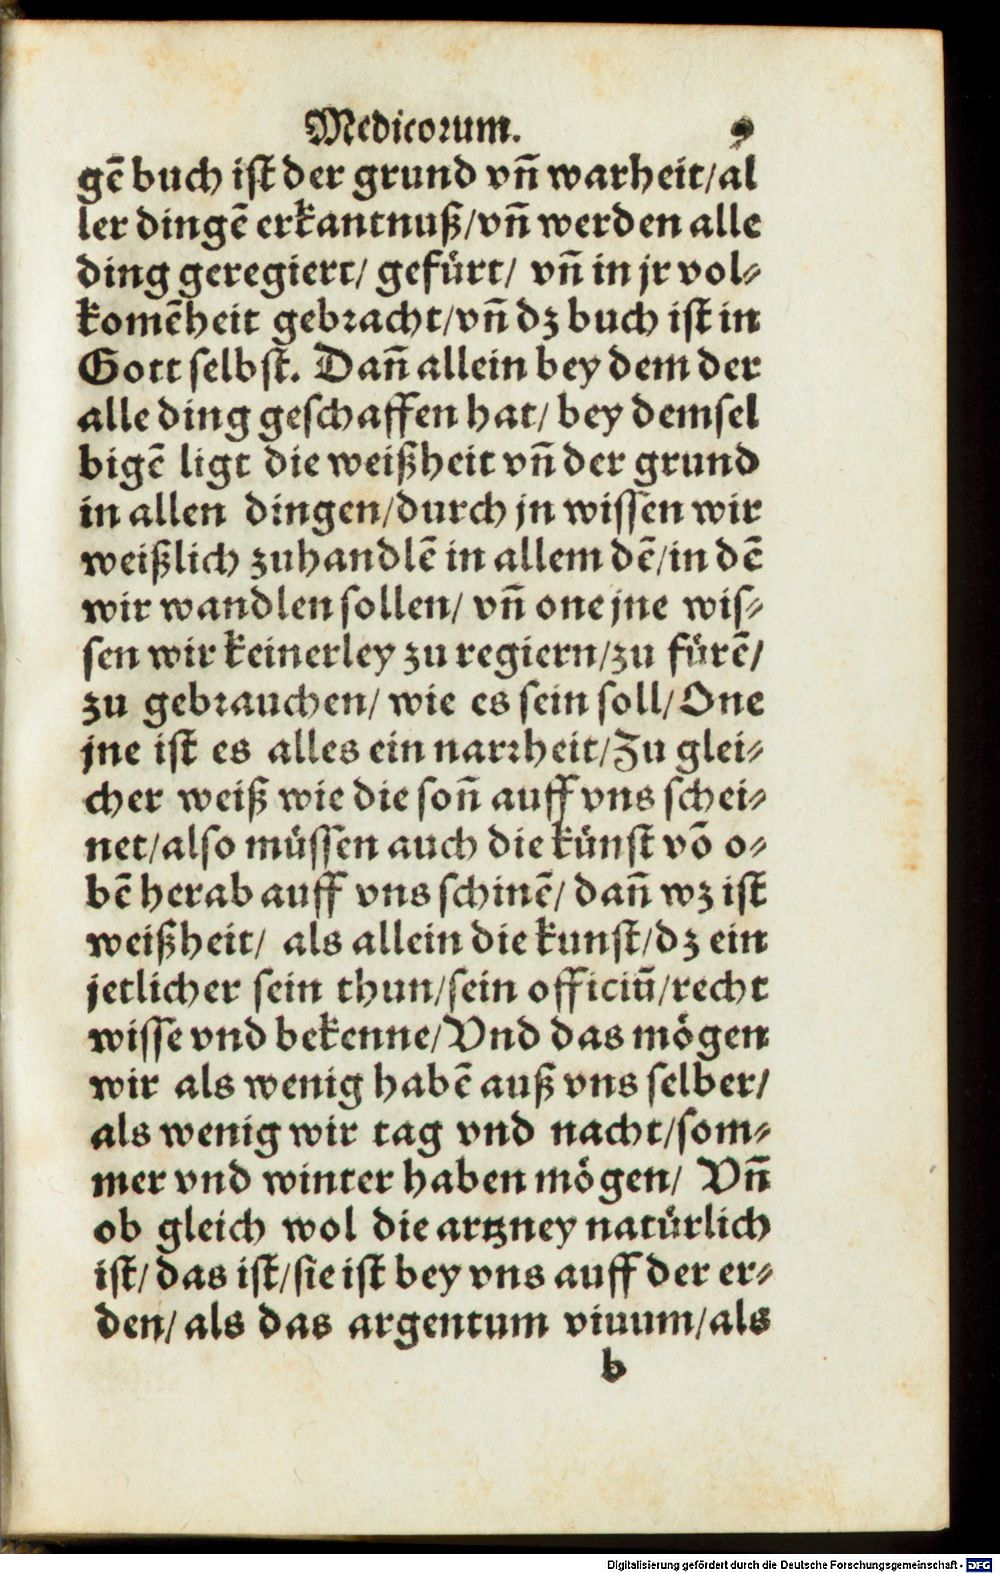 Medicorum. 9
gē buch ist der grund vñ warheit/al
ler dingē erkantnuß/vñ werden alle
ding geregiert/ gefürt/ vñ in jr vol⸗
komēheit gebracht/vñ dz buch ist in
Gott selbst. Dañ allein bey dem der
alle ding geschaffen hat/ bey demsel
bigē ligt die weißheit vñ der grund
in allen dingen/durch jn wissen wir
weißlich zuhandlē in allem dē/in dē
wir wandlen sollen/ vñ one jne wis⸗
sen wir keinerley zu regiern/zu fürē/
zu gebrauchen/ wie es sein soll/One
jne ist es alles ein narrheit/Zu glei⸗
cher weiß wie die soñ auff vns schei⸗
net/also müssen auch die künst vō o⸗
bē herab auff vns schinē/ dañ wz ist
weißheit/ als allein die kunst/dz ein
jetlicher sein thun/sein officiū/recht
wisse vnd bekenne/Vnd das mögen
wir als wenig habē auß vns selber/
als wenig wir tag vnd nacht/som⸗
mer vnd winter haben mögen/ Vñ
ob gleich wol die artzney natürlich
ist/das ist/sie ist bey vns auff der er⸗
den/als das argentum viuum/als
b
Digitalisierung gefördert durch die Deutsche Forschungsgemeinschaft - DFG